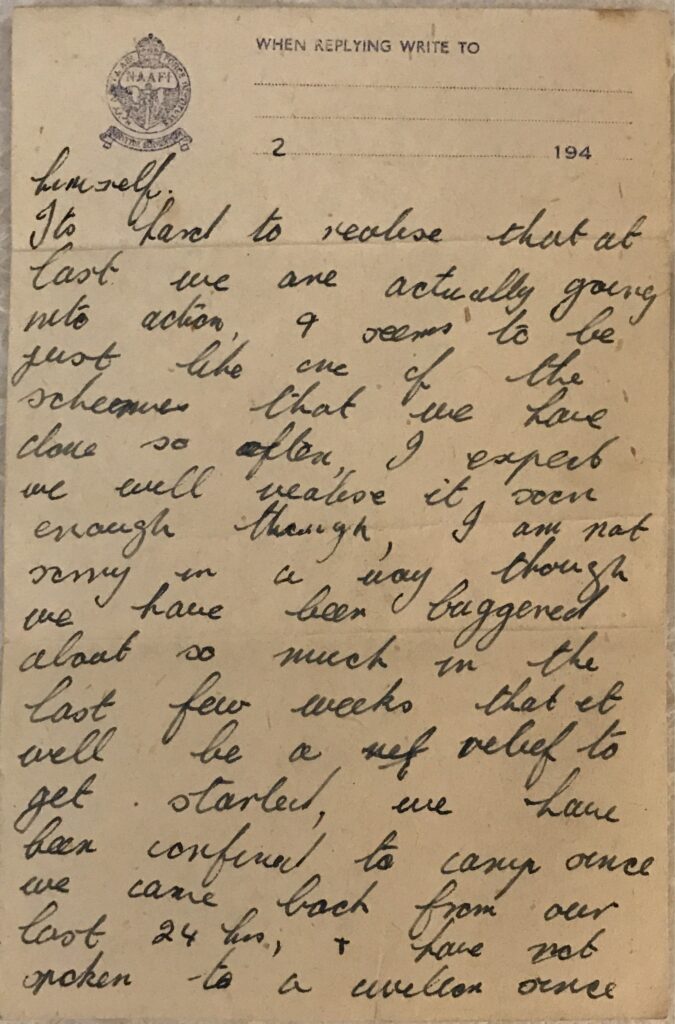 NAAFI
WHEN REPLYING WRITE TO
2 194
himself.
Its hard to realise that at
last we are actually going
into action, & seems to be
just like one of the
schemes that we have
done so often, I expect
we will realise it soon
enough though, I am not
sorry in a way though
we have been buggered
about so much in the
last few weeks that it
will be a relief to
get started, we have
been confined to camp since
we came back from our
last 24 hrs, + have not
spoken to a civilian since